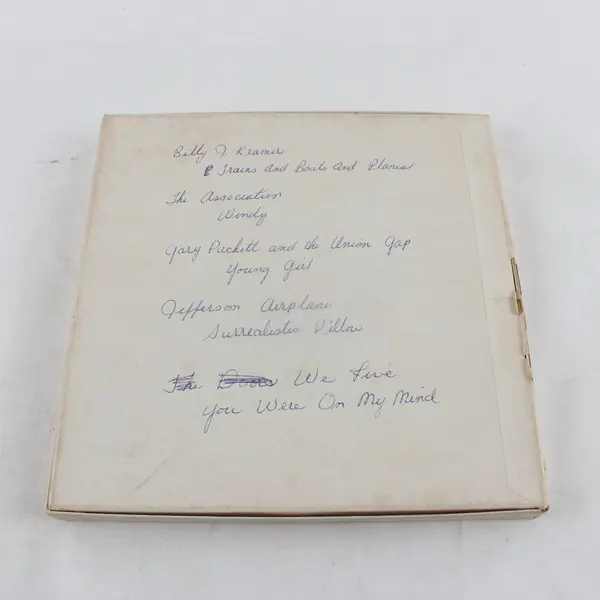 Billy J. Kramer
Trains And Boats And Planes
The Association
Windy
Gary Puckett and the Union Gap
Young Girl
Jefferson Airplane
Surrealistic Pillow
The Doors We Five
You Were On My Mind